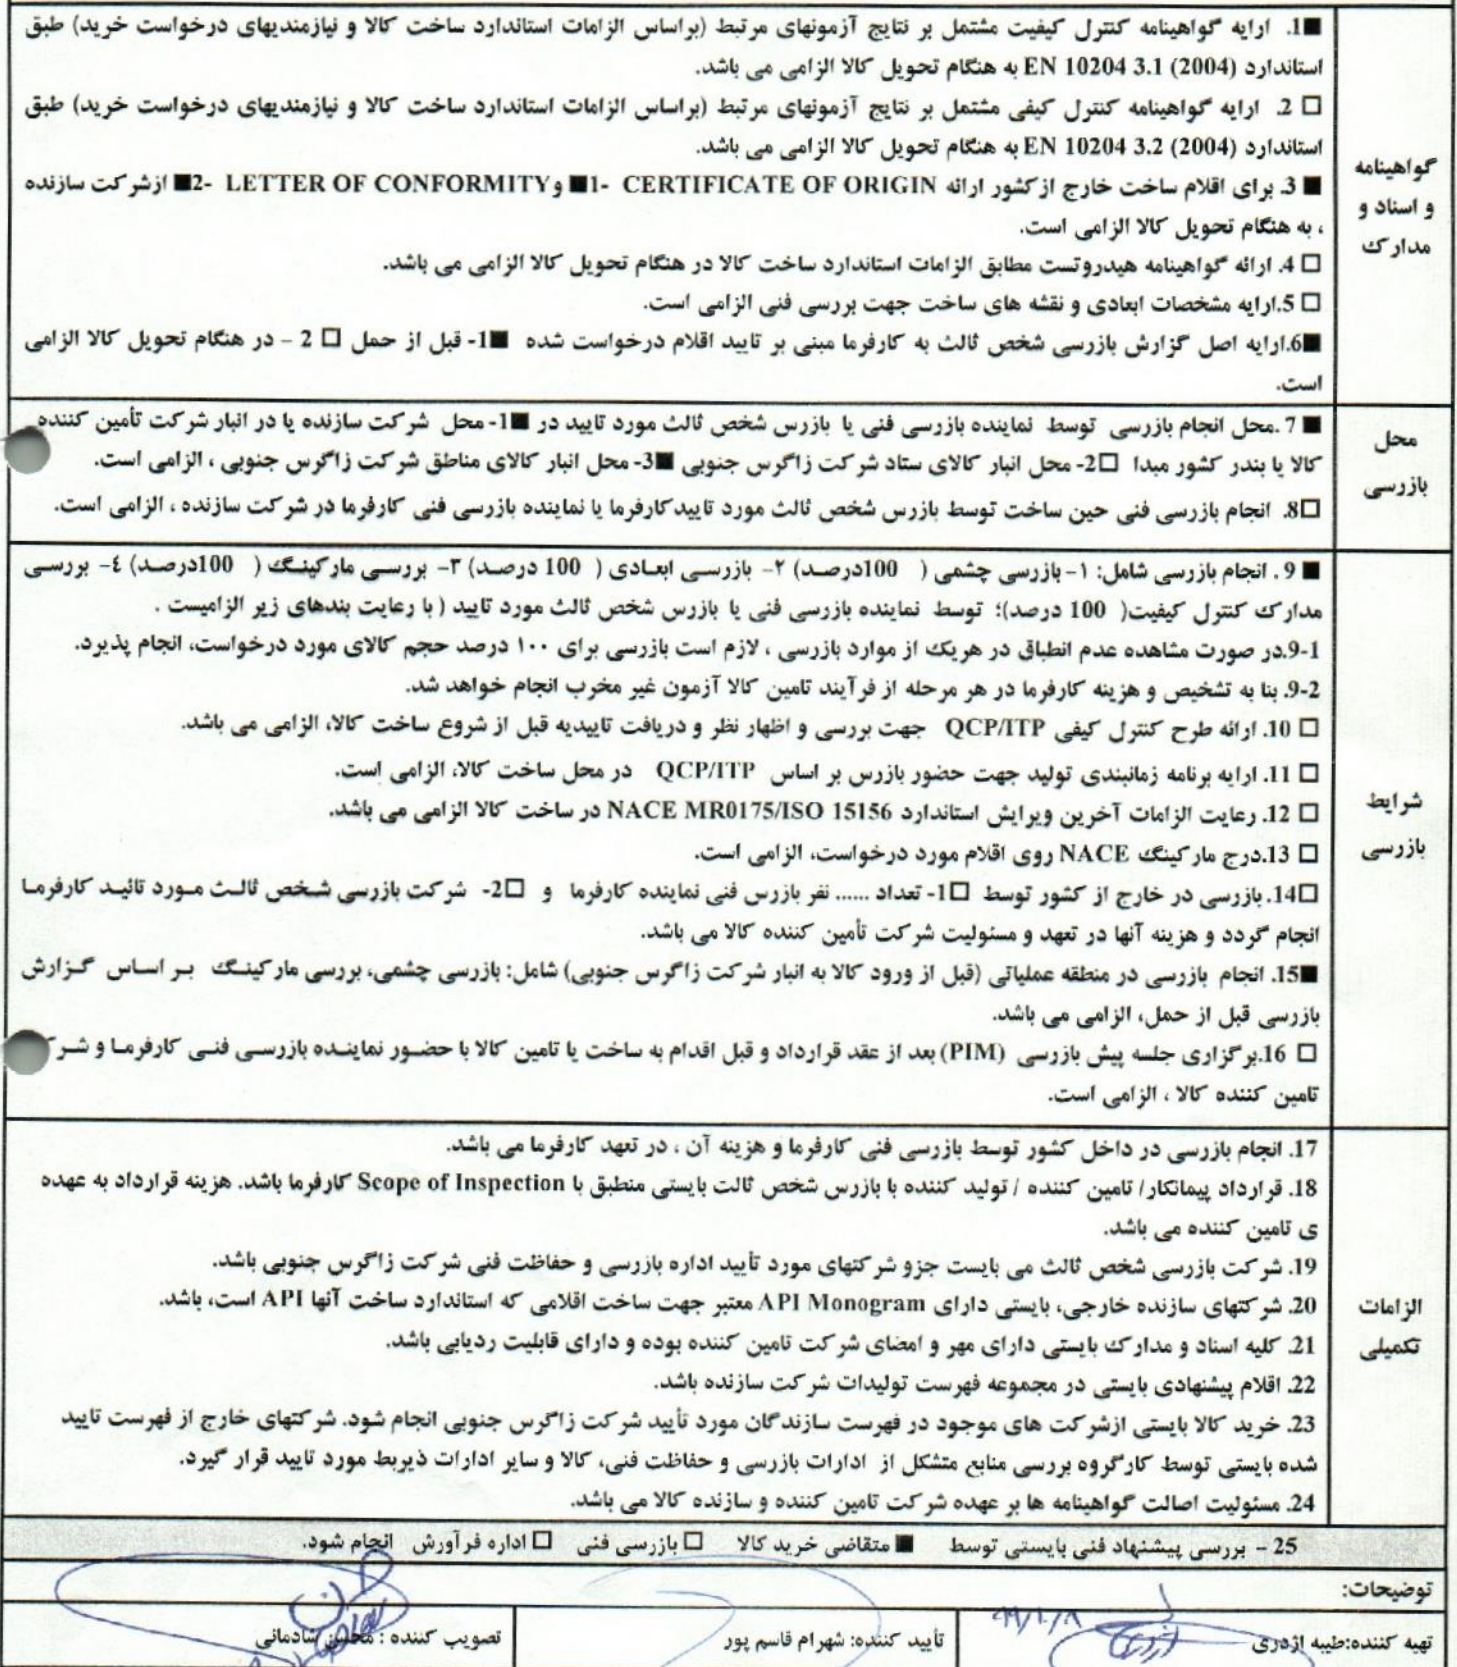 ■1. ارایه گواهینامه کنترل کیفیت مشتمل بر نتایج آزمونهای مرتبط (براساس الزامات استاندارد ساخت کالا و نیازمندیهای درخواست خرید) طبق
استاندارد EN 10204 3.1 (2004) به هنگام تحویل کالا الزامی می باشد.
□ 2. ارایه گواهینامه کنترل کیفی مشتمل بر نتایج آزمونهای مرتبط (براساس الزامات استاندارد ساخت کالا و نیازمندیهای درخواست خرید) طبق
استاندارد EN 10204 3.2 (2004) به هنگام تحویل کالا الزامی می باشد.
■ 3. برای اقلام ساخت خارج ازکشور ارائه CERTIFICATE OF ORIGIN -1■ و LETTER OF CONFORMITY -2■ ازشرکت سازنده
، به هنگام تحویل کالا الزامی است.
□ 4. ارائه گواهینامه هیدروتست مطابق الزامات استاندارد ساخت کالا در هنگام تحویل کالا الزامی می باشد.
□ 5.ارایه مشخصات ابعادی و نقشه های ساخت جهت بررسی فنی الزامی است.
■6.ارایه اصل گزارش بازرسی شخص ثالث به کارفرما مبنی بر تایید اقلام درخواست شده ■1- قبل از حمل □ 2 – در هنگام تحویل کالا الزامی
است.
گواهینامه
و اسناد و
مدارک
■ 7 .محل انجام بازرسی توسط نماینده بازرسی فنی یا بازرس شخص ثالث مورد تایید در ■1- محل شرکت سازنده یا در انبار شرکت تأمین کننده
کالا یا بندر کشور مبدا □2- محل انبار کالای ستاد شرکت زاگرس جنوبی ■3- محل انبار کالای مناطق شرکت زاگرس جنوبی ، الزامی است.
□8. انجام بازرسی فنی حین ساخت توسط بازرس شخص ثالث مورد تاییدکارفرما یا نماینده بازرسی فنی کارفرما در شرکت سازنده ، الزامی است.
محل
بازرسی
■ 9 . انجام بازرسی شامل: ۱- بازرسی چشمی ( 100درصد) ۲- بازرسی ابعادی ( 100 درصد) ۳- بررسی مارکینگ ( 100درصد) ٤- بررسی
مدارک کنترل کیفیت( 100 درصد)؛ توسط نماینده بازرسی فنی یا بازرس شخص ثالث مورد تایید ( با رعایت بندهای زیر الزامیست .
9-1.در صورت مشاهده عدم انطباق در هریک از موارد بازرسی ، لازم است بازرسی برای ۱۰۰ درصد حجم کالای مورد درخواست، انجام پذیرد.
9-2. بنا به تشخیص و هزینه کارفرما در هر مرحله از فرآیند تامین کالا آزمون غیر مخرب انجام خواهد شد.
□ 10. ارائه طرح کنترل کیفی QCP/ITP جهت بررسی و اظهار نظر و دریافت تاییدیه قبل از شروع ساخت کالا، الزامی می باشد.
□ 11. ارایه برنامه زمانبندی تولید جهت حضور بازرس بر اساس QCP/ITP در محل ساخت کالا، الزامی است.
□ 12. رعایت الزامات آخرین ویرایش استاندارد NACE MR0175/ISO 15156 در ساخت کالا الزامی می باشد.
□ 13.درج مارکینگ NACE روی اقلام مورد درخواست، الزامی است.
□14. بازرسی در خارج از کشور توسط □1- تعداد ...... نفر بازرس فنی نماینده کارفرما و □2- شرکت بازرسی شخص ثالث مورد تائید کارفرما
انجام گردد و هزینه آنها در تعهد و مسئولیت شرکت تأمین کننده کالا می باشد.
■15. انجام بازرسی در منطقه عملیاتی (قبل از ورود کالا به انبار شرکت زاگرس جنوبی) شامل: بازرسی چشمی، بررسی مارکینگ بر اساس گزارش
بازرسی قبل از حمل، الزامی می باشد.
□ 16.برگزاری جلسه پیش بازرسی (PIM) بعد از عقد قرارداد و قبل اقدام به ساخت یا تامین کالا با حضور نماینده بازرسی فنی کارفرما و
تامین کننده کالا ، الزامی است.
شرایط
بازرسی
17. انجام بازرسی در داخل کشور توسط بازرسی فنی کارفرما و هزینه آن ، در تعهد کارفرما می باشد.
18. قرارداد پیمانکار/ تامین کننده / تولید کننده با بازرس شخص ثالث بایستی منطبق با Scope of Inspection کارفرما باشد. هزینه قرارداد به عهده
ی تامین کننده می باشد.
19. شرکت بازرسی شخص ثالث می بایست جزو شرکتهای مورد تأیید اداره بازرسی و حفاظت فنی شرکت زاگرس جنوبی باشد.
20. شرکتهای سازنده خارجی، بایستی دارای API Monogram معتبر جهت ساخت اقلامی که استاندارد ساخت آنها API است، باشد.
21. کلیه اسناد و مدارک بایستی دارای مهر و امضای شرکت تامین کننده بوده و دارای قابلیت ردیابی باشد.
22. اقلام پیشنهادی بایستی در مجموعه فهرست تولیدات شرکت سازنده باشد.
23. خرید کالا بایستی ازشرکت های موجود در فهرست سازندگان مورد تأیید شرکت زاگرس جنوبی انجام شود. شرکتهای خارج از فهرست تایید
شده بایستی توسط کارگروه بررسی منابع متشکل از ادارات بازرسی و حفاظت فنی، کالا و سایر ادارات ذیربط مورد تایید قرار گیرد.
24. مسئولیت اصالت گواهینامه ها بر عهده شرکت تامین کننده و سازنده کالا می باشد.
الزامات
تکمیلی
25 – بررسی پیشنهاد فنی بایستی توسط ■ متقاضی خرید کالا □ بازرسی فنی □ اداره فرآورش انجام شود.
توضیحات:
تهیه کننده:طیبه اژدری
تأیید کننده: شهرام قاسم پور
تصویب کننده : محسن شادمانی